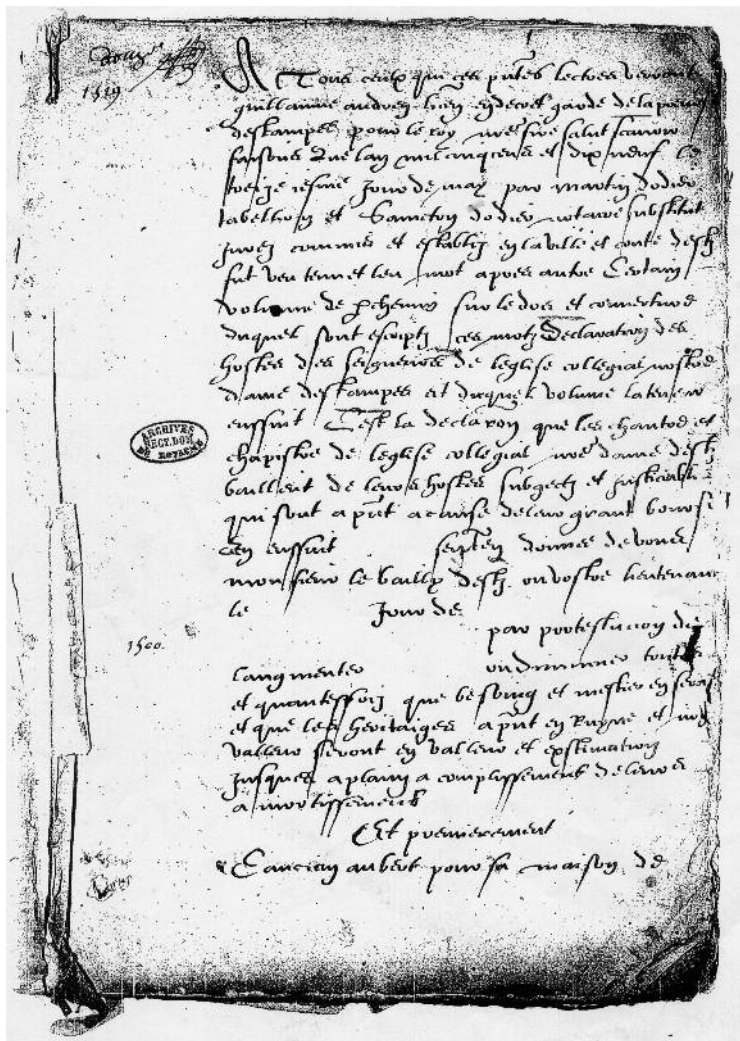 1519
A Tous ceulx qui ces pntes lectres verront
guillaume audren garde de la
destampes pour le roy nre sire salut scavoir
faisons Que lan mil cinq cens et dix neuf le
jour de may par martin dodier
tabellion et dodier notaire substitut
jurez commis et establiz en la ville et conté dest
fut veu tenu et leu mot apres autre Certain
volume de pchemin sur le dos et couverture
duquel sont escriptz ces motz Declaration des
hostes des seigneuries de leglise collegial nostre
dame destampes et duquel volume la teneur
enssuit Cest la declaron que les chantre et
chapistre de leglise collegial nre dame dest
baillent de leurs hostes subgectz et justiciables
qui sont a pnt a cause de leur grant
enssuit donnee de vous
monsieur le bailly dest ou vostre lieutenant
le Jour de
par protestacion de
1500.
laugmenter ou diminuer toutes
et quanteffoiz que besoing et mestier en sera
et que les heritaiges a pnt en Ruyne et non
valleur seront en valleur et exstimation
jusques a plain acomplissement de leurs
amortissements
Et premierement
Cancian aubert pour sa maison de
ARCHIVES
SECT. DOM
DU ROYAUME